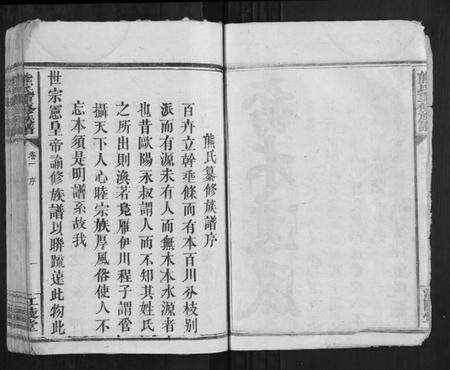 熊氏纂修族譜序
百卉立幹垂條而有本百川分枝別
派而有源未有人而無木本水源者
也昔歐陽永叔謂人而不知其姓氏
之所出則渙若凫雁伊川程子謂管
攝天下人心睦宗族厚風俗使人不
忘本須是明譜系故我
世宗憲皇帝諭修族譜以聯疏遠此物此
熊氏
族譜
卷一 序
一
江陵堂